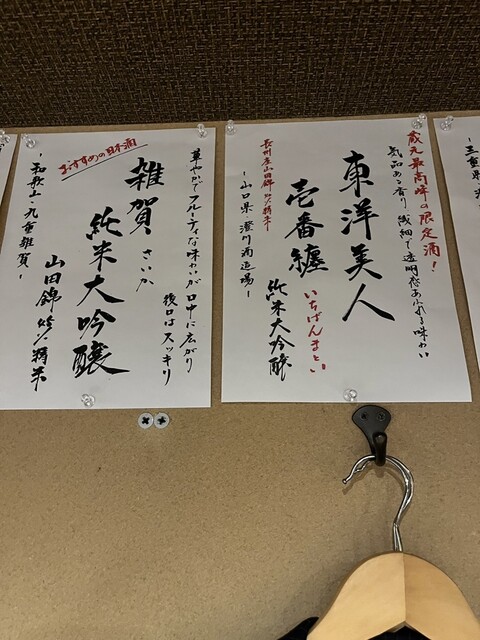 蔵元最高峰の限定酒!
気品ある香り、繊細で透明感あふれる味わい
東洋美人
壱番纏 いちばんまとい
純米大吟醸
長州産山田錦
-山口県 澄川酒造場-
おすすめの日本酒
華やかでフルーティな味わいが口中に広がり
後口はスッキリ
雑賀 さいか
純米大吟醸
山田錦
-和歌山 九重雑賀-
-三重県